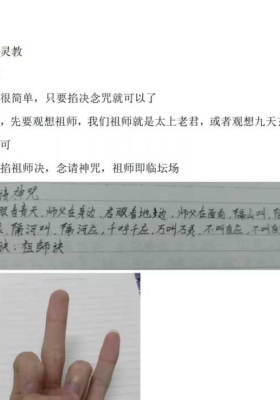 灵教
很简单，只要掐决念咒就可以了
，先要观想祖师，我们祖师就是太上老君，或者观想九天
可
掐祖师决，念请神咒，祖师即临坛场
神咒
眼看青天，师父在身边，
隔山叫，
隔河叫，隔河应，千叫千应，万叫万灵，不叫自应，
祖师诀